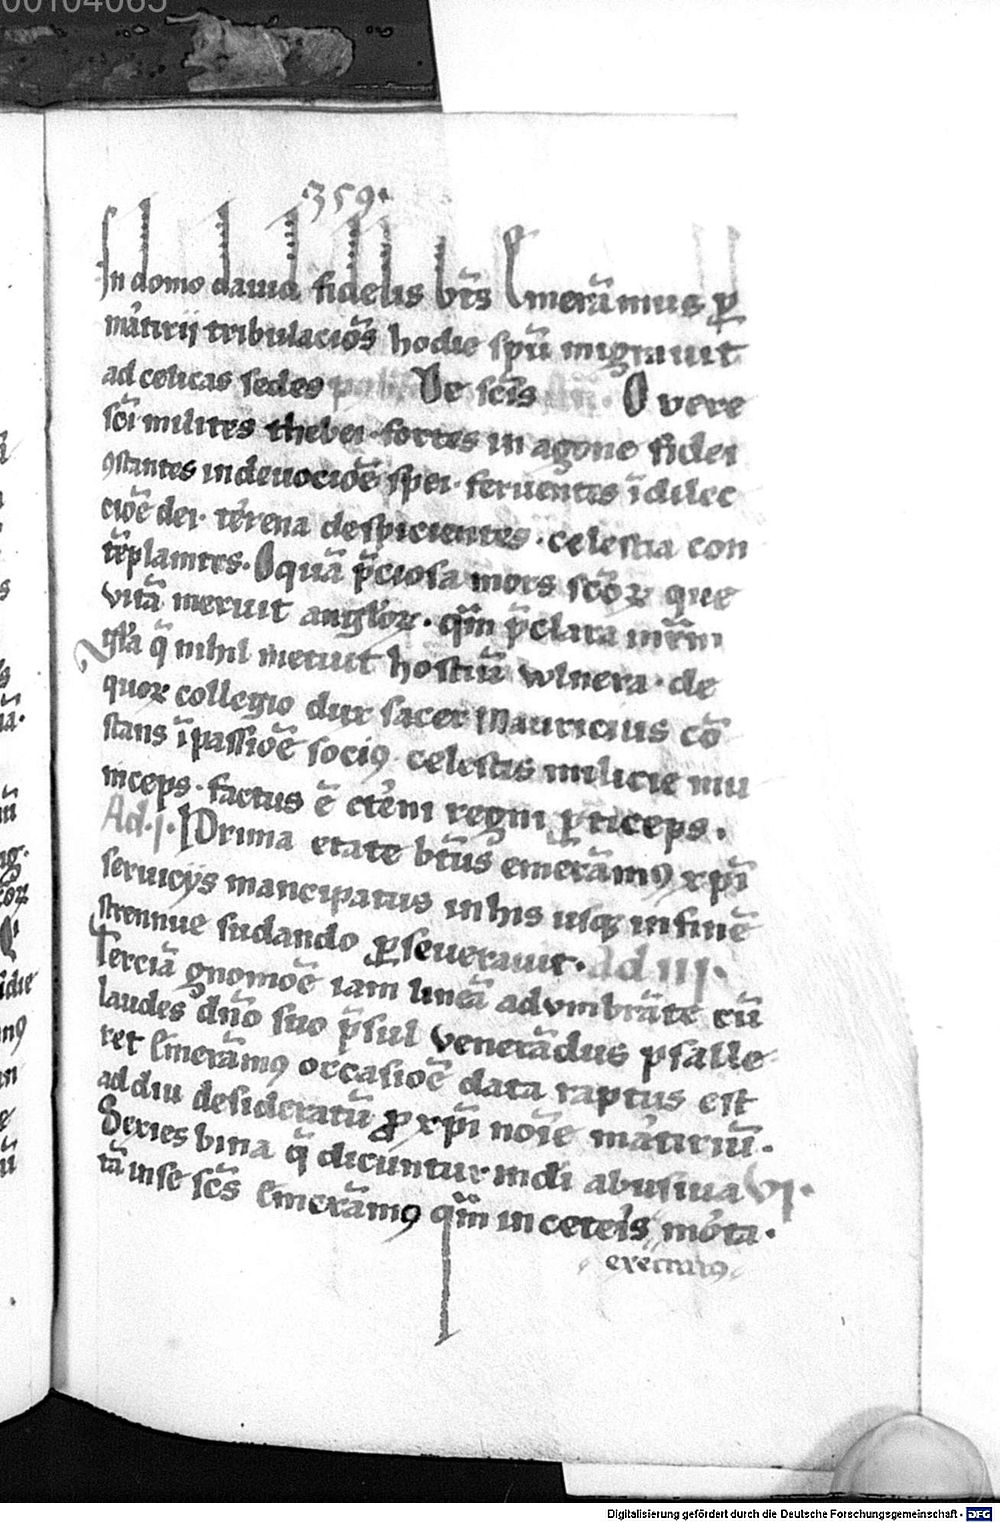 00104065
359.
In domo dauid fidelis bt̄s Emerāmus ꝑ
mᷓtirij tribulacōis hodie sp̄m migrauit
ad celicas sedes De sc̄is O vere
sc̄i milites thebei fortes in agone fidei
ꝯstantes in deuocōe spei feruentes ī dilec
cōe dei terrena despicientes celestia con
tēplantes. O quā p̄ciosa mors sc̄oꝝ que
vitā meruit angl̄oꝝ. qm̄ p̄clara
gl̄a q̄ nihil metuit hostiū wlnera de
quoꝝ collegio dux sacer Mauricius cō
stans ī passiōe sociꝯ celestis milicie mu
niceps factus ē et̄ni regni ꝑticeps.
Ad .j. Prima etate bt̄us emerāmꝯ xp̄i
seruicijs mancipatus in his usqꝫ in finē
strennue sudando ꝑseuerauit. Ad iij.
Terciā gnomōe iam lineā adumbrāte cū
laudes dn̄o suo p̄sul venerādus psalle
ret Emerāmꝯ occasiōe data raptus est
ad diu desideratū ꝓ xp̄i noīe mᷓtiriū.
Series bina q̄ dicuntur abusiua VI.
tā in se sc̄s Emerāmꝯ qm̄ in ceteris
Digitalisierung gefördert durch die Deutsche Forschungsgemeinschaft - DFG